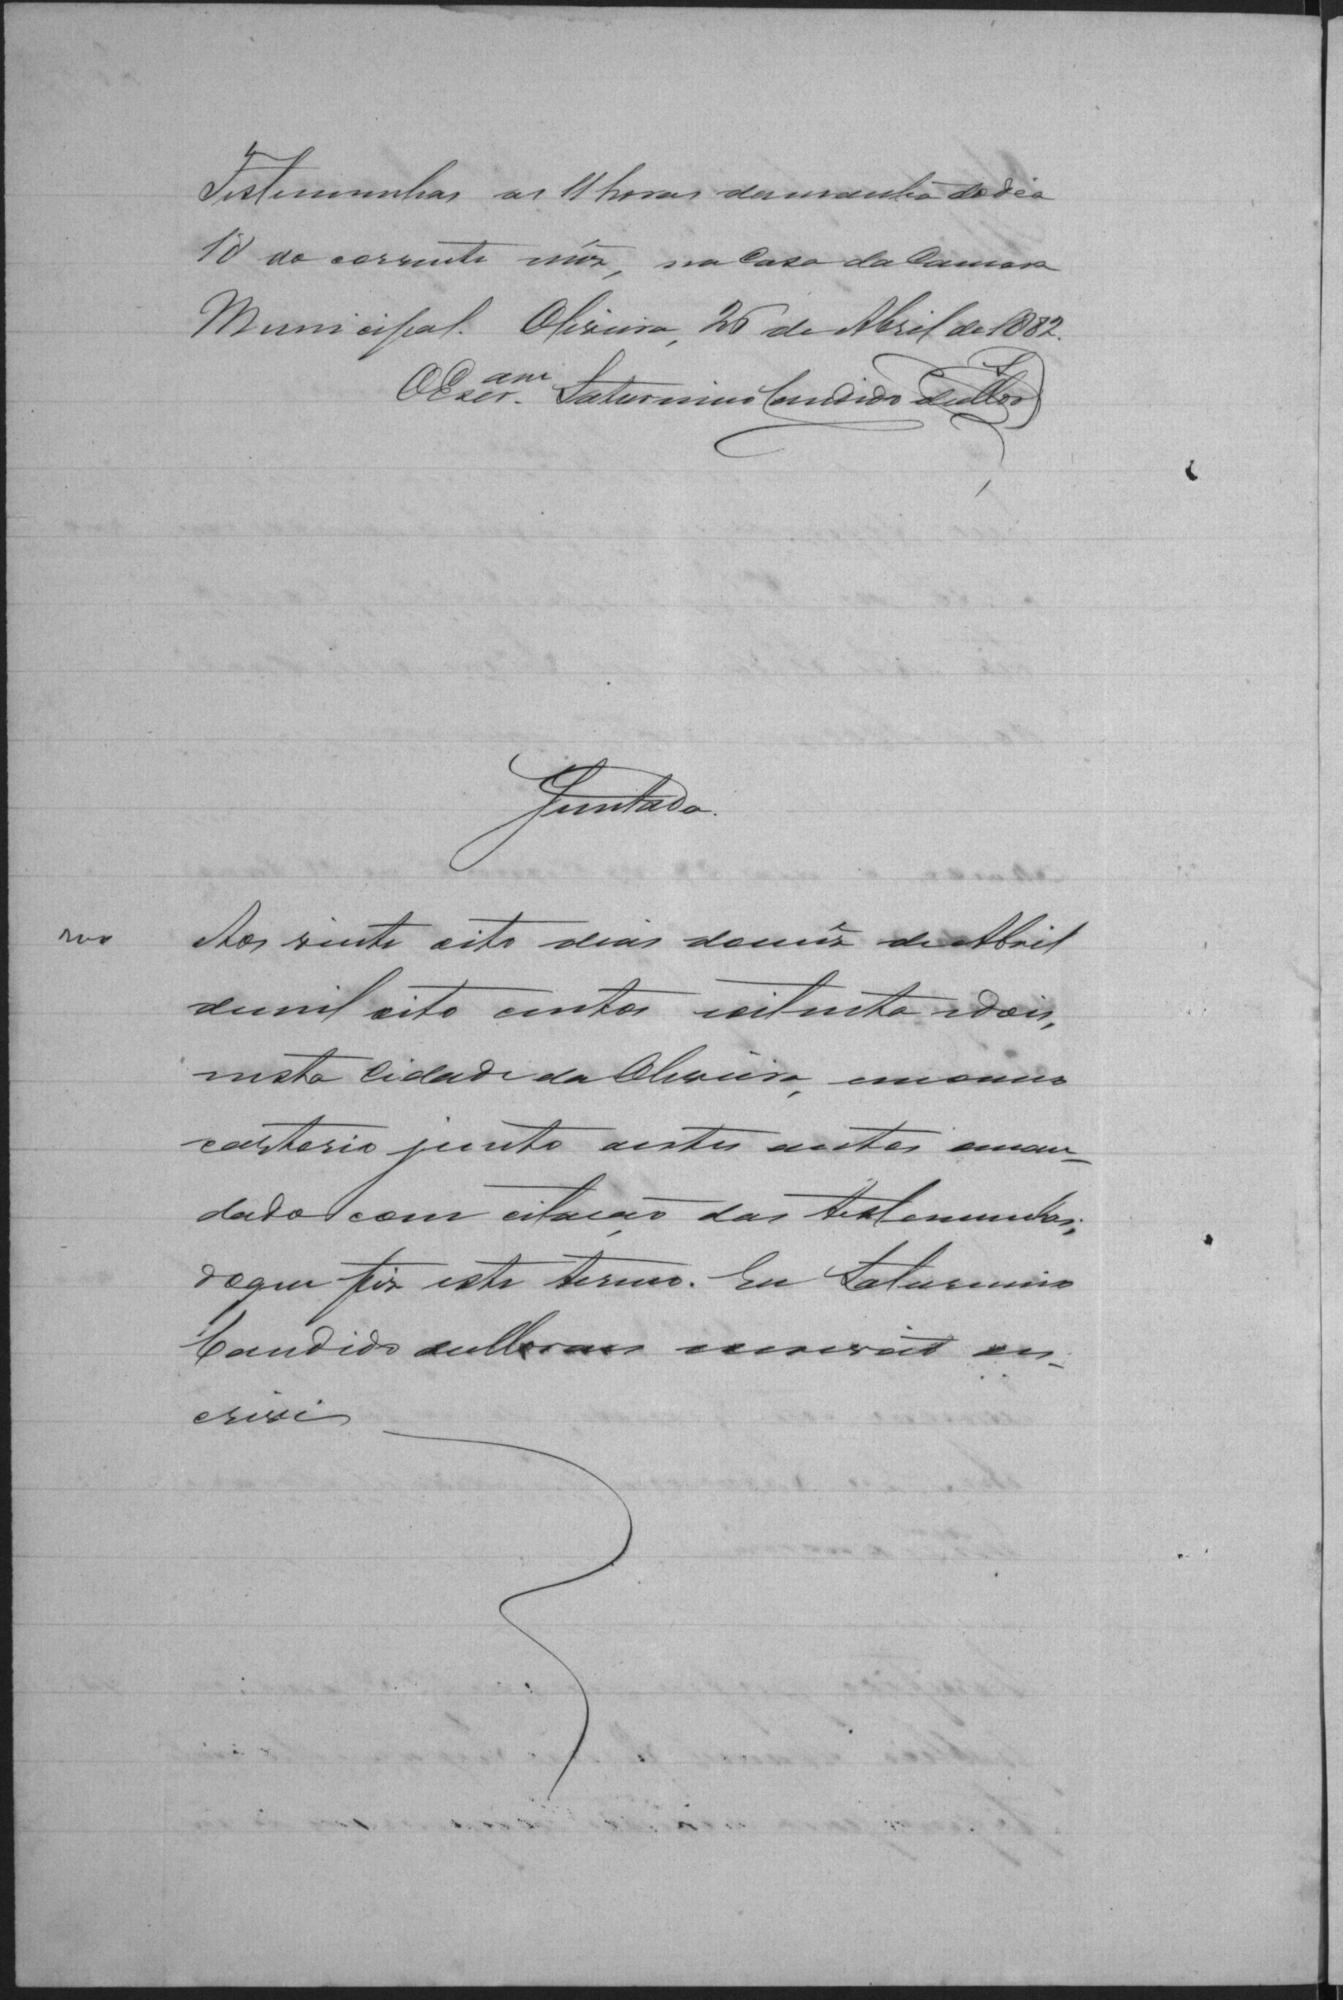 Testemunhas as 11 horas da manhã do dia
do corrente mêz, na Casa da Camara
Municipal. Oliveira, 26 de Abril de 1882.
O Escr.am Saturnino Candido de Mor
Juntada.
Aos vinte oito dias do mêz de Abril
de mil oito centos oitenta e dois,
nesta Cidade da Oliveira, em o meu
cartorio junto a estes autos o man-
dado com citação das testemunhas;
do que fiz este termo. Eu Saturnino
Candido de Moraes escrivão es-
crivi